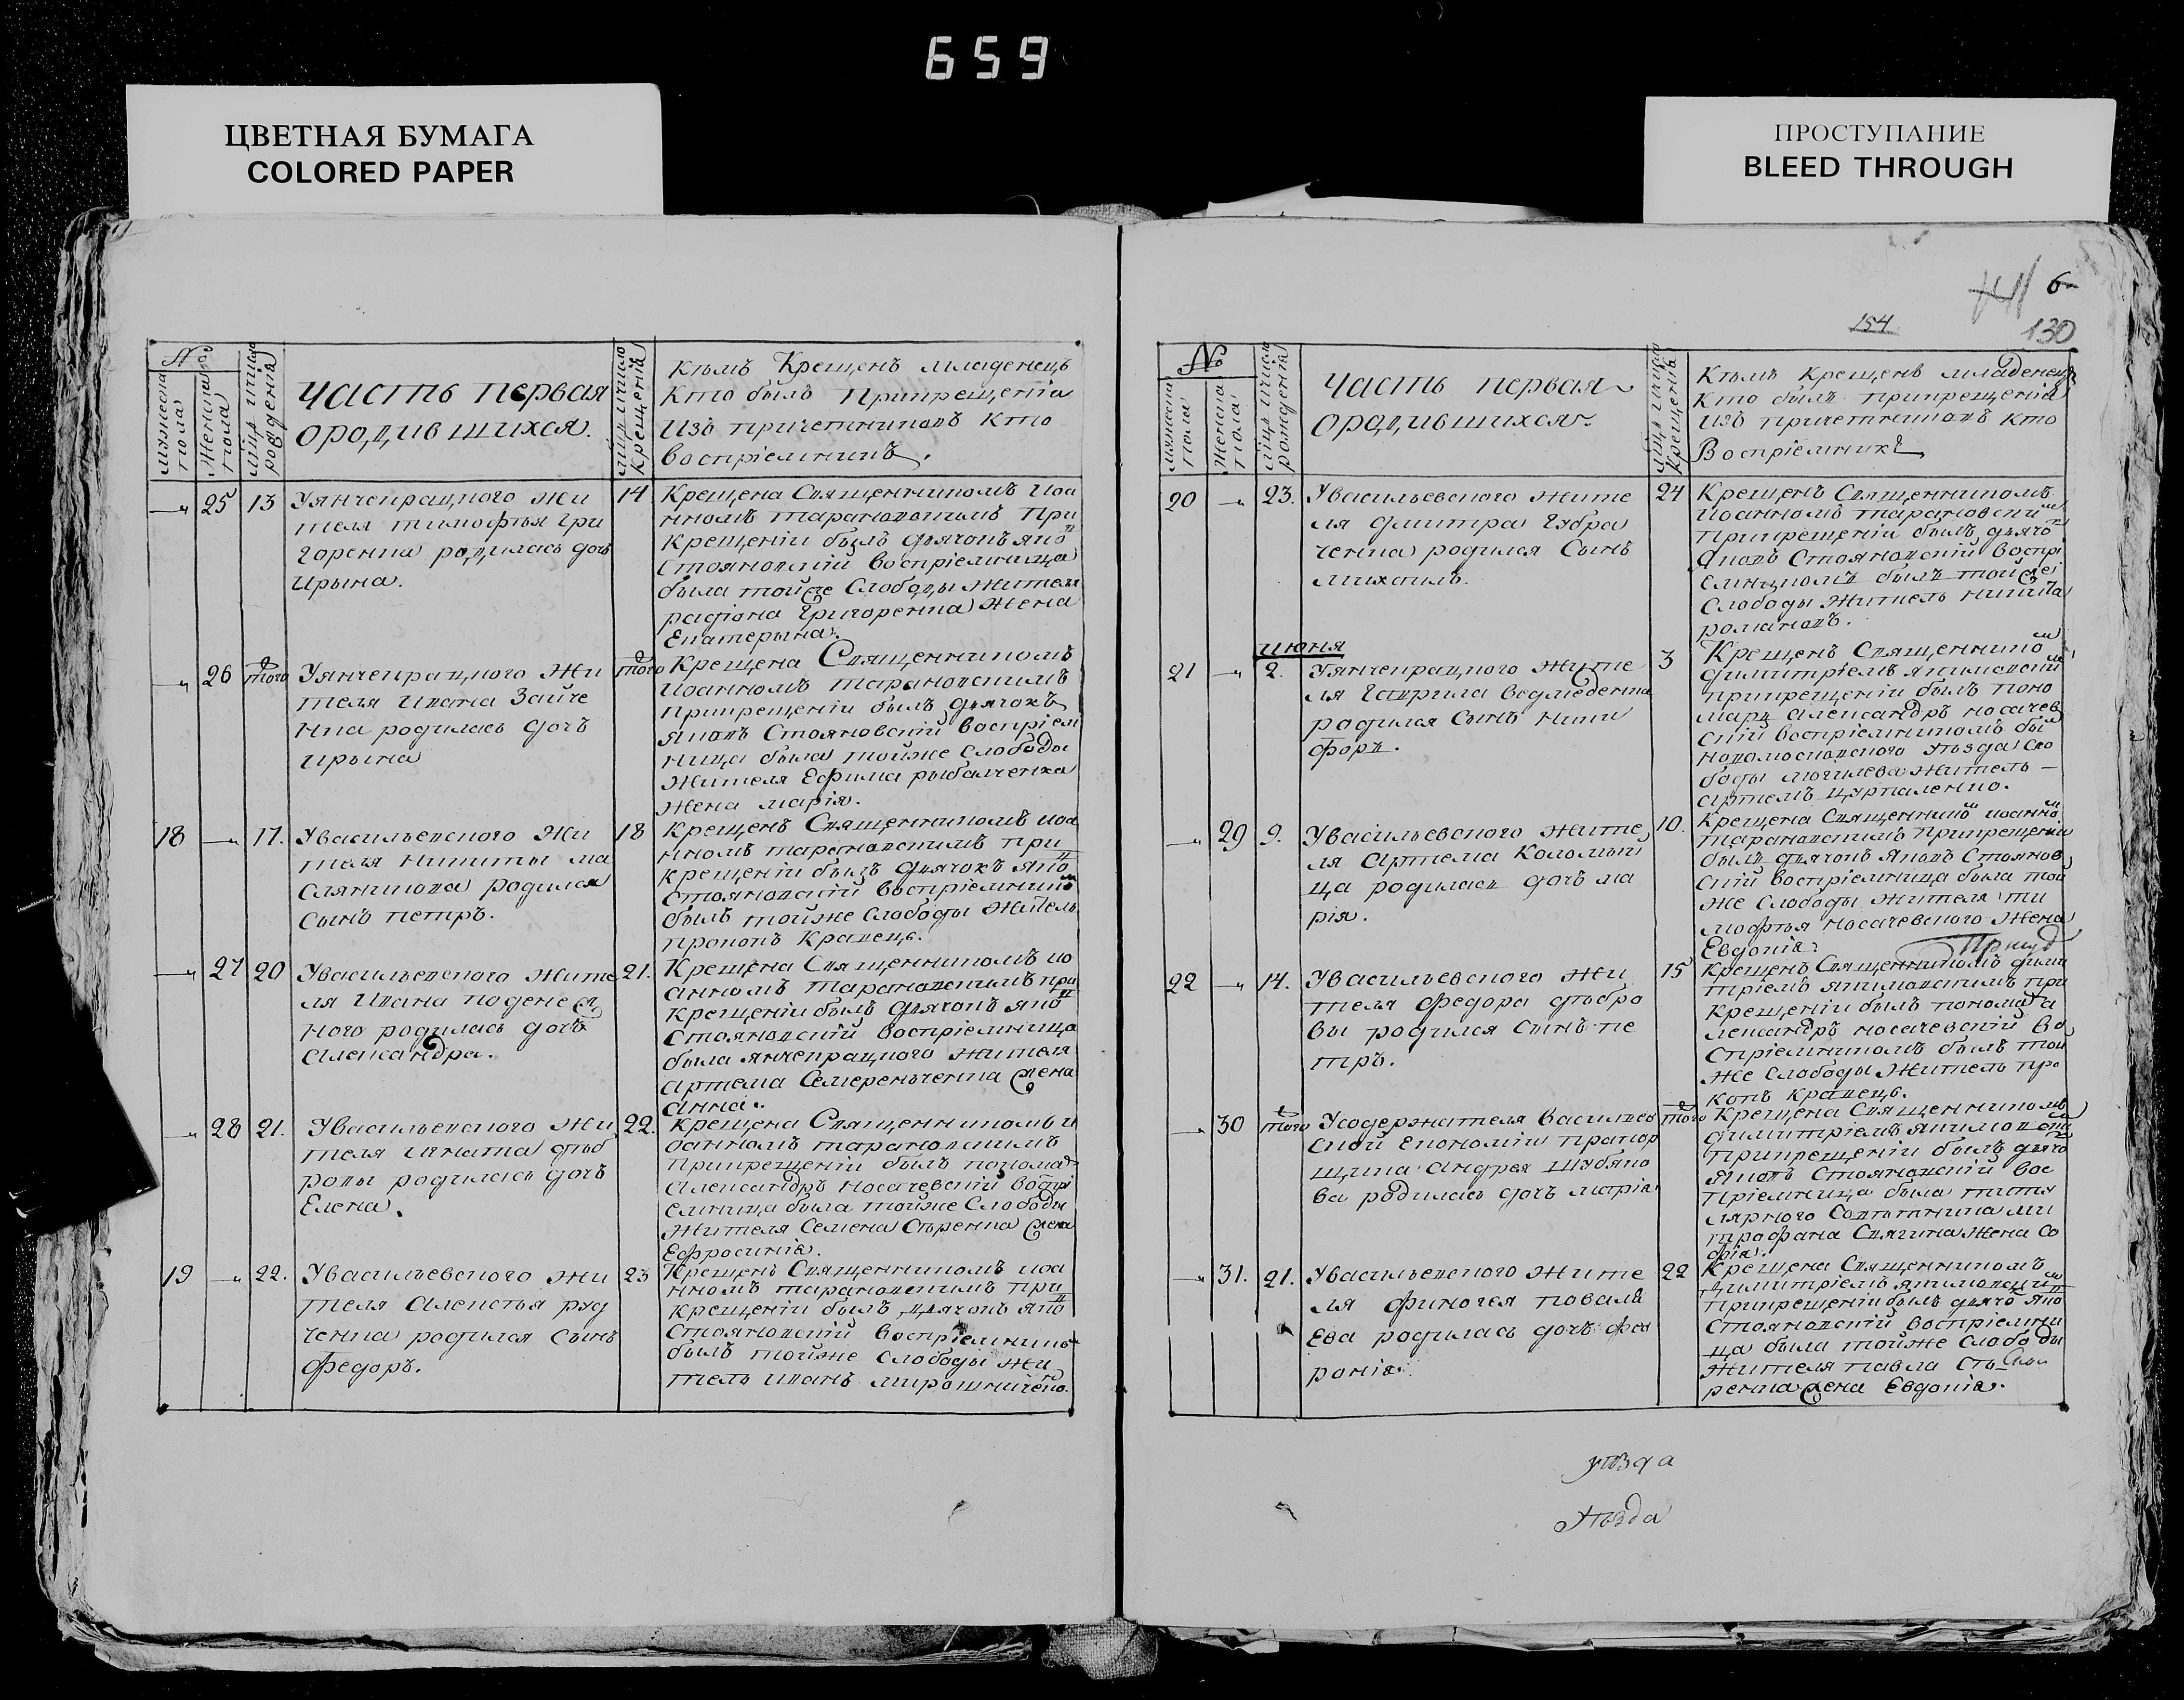 659
ЦВЕТНАЯ БУМАГА
COLORED PAPER
ПРОСТУПАНИЕ
BLEED THROUGH
№
мужеска пола
женска пола
рождения
часть первая
ородившихся.
крещения
Кѣмъ Крещенъ младенецъ
Кто былъ Прикрещеніи
Изъ причетниковъ Кто
воспріемникъ.
— 25 13
Уянчекрацкого жи
теля тимофѣя Гри
горенка родилась дочь
Ирына.
14
Крещена Священникомъ Иоа
нномъ тарановскимъ При
Крещеніи былъ дьячокъ яко
Стояновскій воспріемница
была тойже Слободы жителя
радіона Григоренка Жена
Екатерына.
— 26 того
Уянчекрацкого Жи
теля Ивана Зайче
нка родилась дочь
ирына
того
Крещена Священникомъ
Иоанномъ тарановскимъ
прикрещеніи былъ дьячокъ
яковъ Стояновскій воспріем
ница была тойже слободы
жителя Ефима рыбалченка
жена марія.
18 — 17.
Увасильевского Жи
теля никиты ма
слянникова родился
Сынъ петръ.
18
Крещенъ Священникомъ иоа
нномъ тарановскимъ при
крещеніи былъ дьячокъ яко
стояновскій воспріемнико
былъ тойже слободы житель
прокопъ Кравецъ.
— 27 20
Увасильевского жите
ля Ивана
ного родилась дочь
александра.
21.
Крещена Священникомъ ио
анномъ тарановскимъ при
крещеніи былъ дьячокъ яко
Стояновскій воспріемница
была янчекрацкого жителя
артема Семеренченка жена
анна.
— 28 21.
Увасильевского Жи
теля игната дѣб
ровы родилась дочь
Елена.
22.
Крещена Священникомъ и
оанномъ тарановскимъ
прикрещеніи былъ понома
александръ носачевскій воспрі
емница была тойже Слободы
жителя Семена Сѣренка жена
Ефросинія.
19 — 22.
Увасильевского жи
теля алексѣя руд
ченка родился Сынъ
федоръ.
23
Крещенъ Священникомъ иоа
нномъ тарановскимъ при
крещеніи былъ дьячокъ яко
Стояновскій воспріемникъ
былъ тойже слободы жи
тель иванъ мирошниченко.
6
154
130
№
мужеска пола
женска пола
рожденія
часть первая
ородившихся
крещенія
Кѣмъ крещенъ младенецъ
Кто былъ прикрещеніи
изъ причетниковъ кто
Воспріемникъ
20 — 23.
Увасильевского жите
ля дмитра Губра
ченка родился Сынъ
михаилъ.
24
Крещенъ Священникомъ
иоанномъ тарановски
прикрещеніи былъ дьячо
яковъ Стояновскій воспрі
емникомъ былъ тойже
слободы житель никита
романовъ.
июня
21 — 2.
Уянчекрацкого жите
ля гаврила ведмеденка
родился Сынъ ники
форъ.
3
Крещенъ Священнико
димитріемъ якимовски
прикрещеніи былъ поно
марь александръ носачев
скій воспріемникомъ бы
новомосковского уѣзда сло
боды могилева житель —
артемъ цупаленко.
— 29 9.
Увасильевского жите
ля артема Коломый
ца родилась дочь ма
рія.
10.
Крещена Священнико иоанно
тарановскимъ прикрещеніи
былъ дьячокъ яковъ Стоянов
скій воспріемница была той
же слободы жителя ти
мофѣя носачевского жена
Евдокія.
22 — 14.
Увасильевского жи
теля федора дѣбро
вы родился сынъ пе
тръ.
15
крещенъ Священникомъ дими
тріемъ якимовскимъ при
крещеніи былъ понома а
лександръ носачевскій во
спріемникомъ былъ той
же слободы житель про
копъ кравецъ.
— 30 того
Усодержателя василев
ской економіи прапор
щика андрея шубяко
ва родилась дочь марія
того
Крещена Священникомъ
димитріемъ якимовски
прикрещеніи былъ дьячо
яковъ Стояновскій вос
пріемница была титу
лярного Совѣтника ми
трофана Жена Со
фія.
— 31. 21.
Увасильевского жите
ля финогея ковалѣ
Ева родилась дочь фев
ронія.
22
Крещена Священникомъ
Димитріемъ якимовски
прикрещеніи былъ дьячо яко
стояновскій воспріемни
ца была тойже слободы
жителя павла сѣ
ренка жена Евдокія.
уѣзда
уѣзда